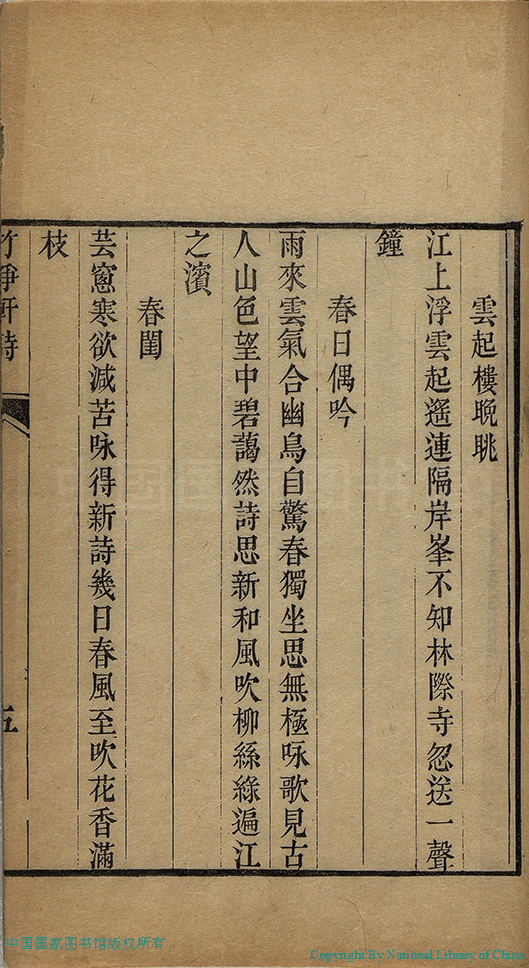 雲起樓晚眺
江上浮雲起遙連隔岸峯不知林際寺忽送一聲
鐘
春日偶吟
雨來雲氣合幽鳥自驚春獨坐思無極咏歌見古
人山色望中碧藹然詩思新和風吹柳絲綠遍江
之濱
春閨
芸窻寒欲減苦咏得新詩幾日春風至吹花香滿
枝
竹淨軒詩
五
中国国家图书馆版权所有
Copyright By National Library of China